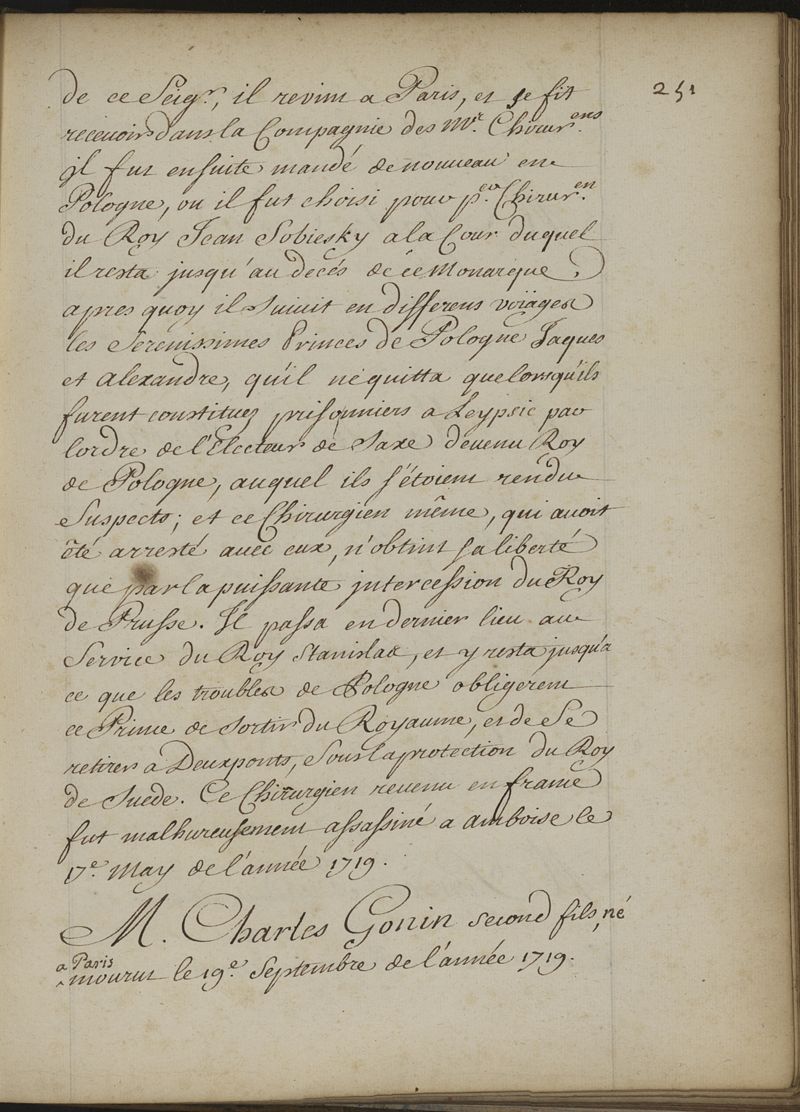 251
de ce Seigr, il revint a Paris, et se fit
recevoir dans la Compagnie des Mrs Chirurens.
Il fut ensuite mandé de nouveau en
Pologne, ou il fut choisi pour per Chiruren.
du Roy Jean Sobiesky a la Cour duquel
il resta jusqu'au decés de ce Monarque,
apres quoy il suivit en differens voÿages
les Serenissimes Princes de Pologne Jaques
et Alexandre, qu'il ne quitta que lorsqu'ils
furent constituez prisonniers a Leypsic par
l'ordre de l'Electeur de Saxe devenu Roy
de Pologne, auquel ils s'étoient rendu
Suspects; et ce Chirurgien même, qui avoit
été arresté avec eux, n'obtint sa liberté
que par la puissante intercession du Roy
de Prusse. Il passa en dernier lieu au
Service du Roy Stanislax, et y resta jusqu'a
ce que les troubles de Pologne obligerent
ce Prince de sortir du Royaume, et de Se
retirer a Deuxponts, sous la protection du Roy
de Suede. Ce Chirurgien revenu en france
fut malhureusement assassiné a amboise le
17e May de l'année 1719.
M. Charles Gonin second fils, né
a Paris
mourut le 19e Septembre de l'année 1719.